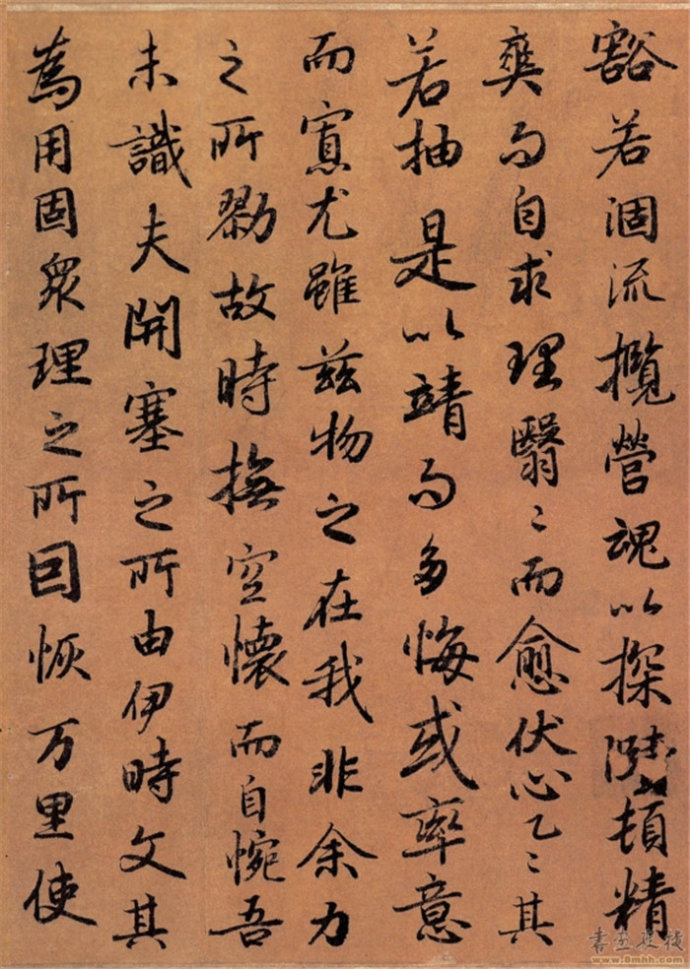 豁若涸流攬營魂以探頓精
爽而自求理翳〻而愈伏心乙〻其
若抽是以靖而多悔或率意
而寡尤雖茲物之在我非余力
之所勠故時撫空懷而自惋吾
未識夫開塞之所由伊時文其
為用固眾理之所因恢万里使
www.8mhh.com